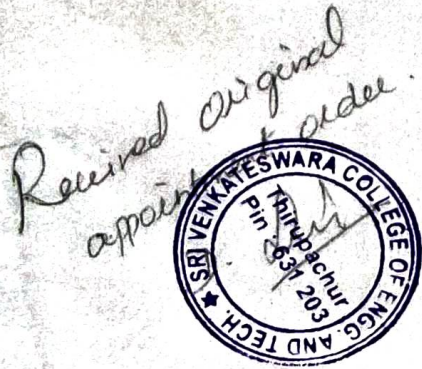 Received Original
appointment order.
★ SRI VENKATESWARA COLLEGE OF ENGG. AND TECH.
Thirupachur
Pin 631 203